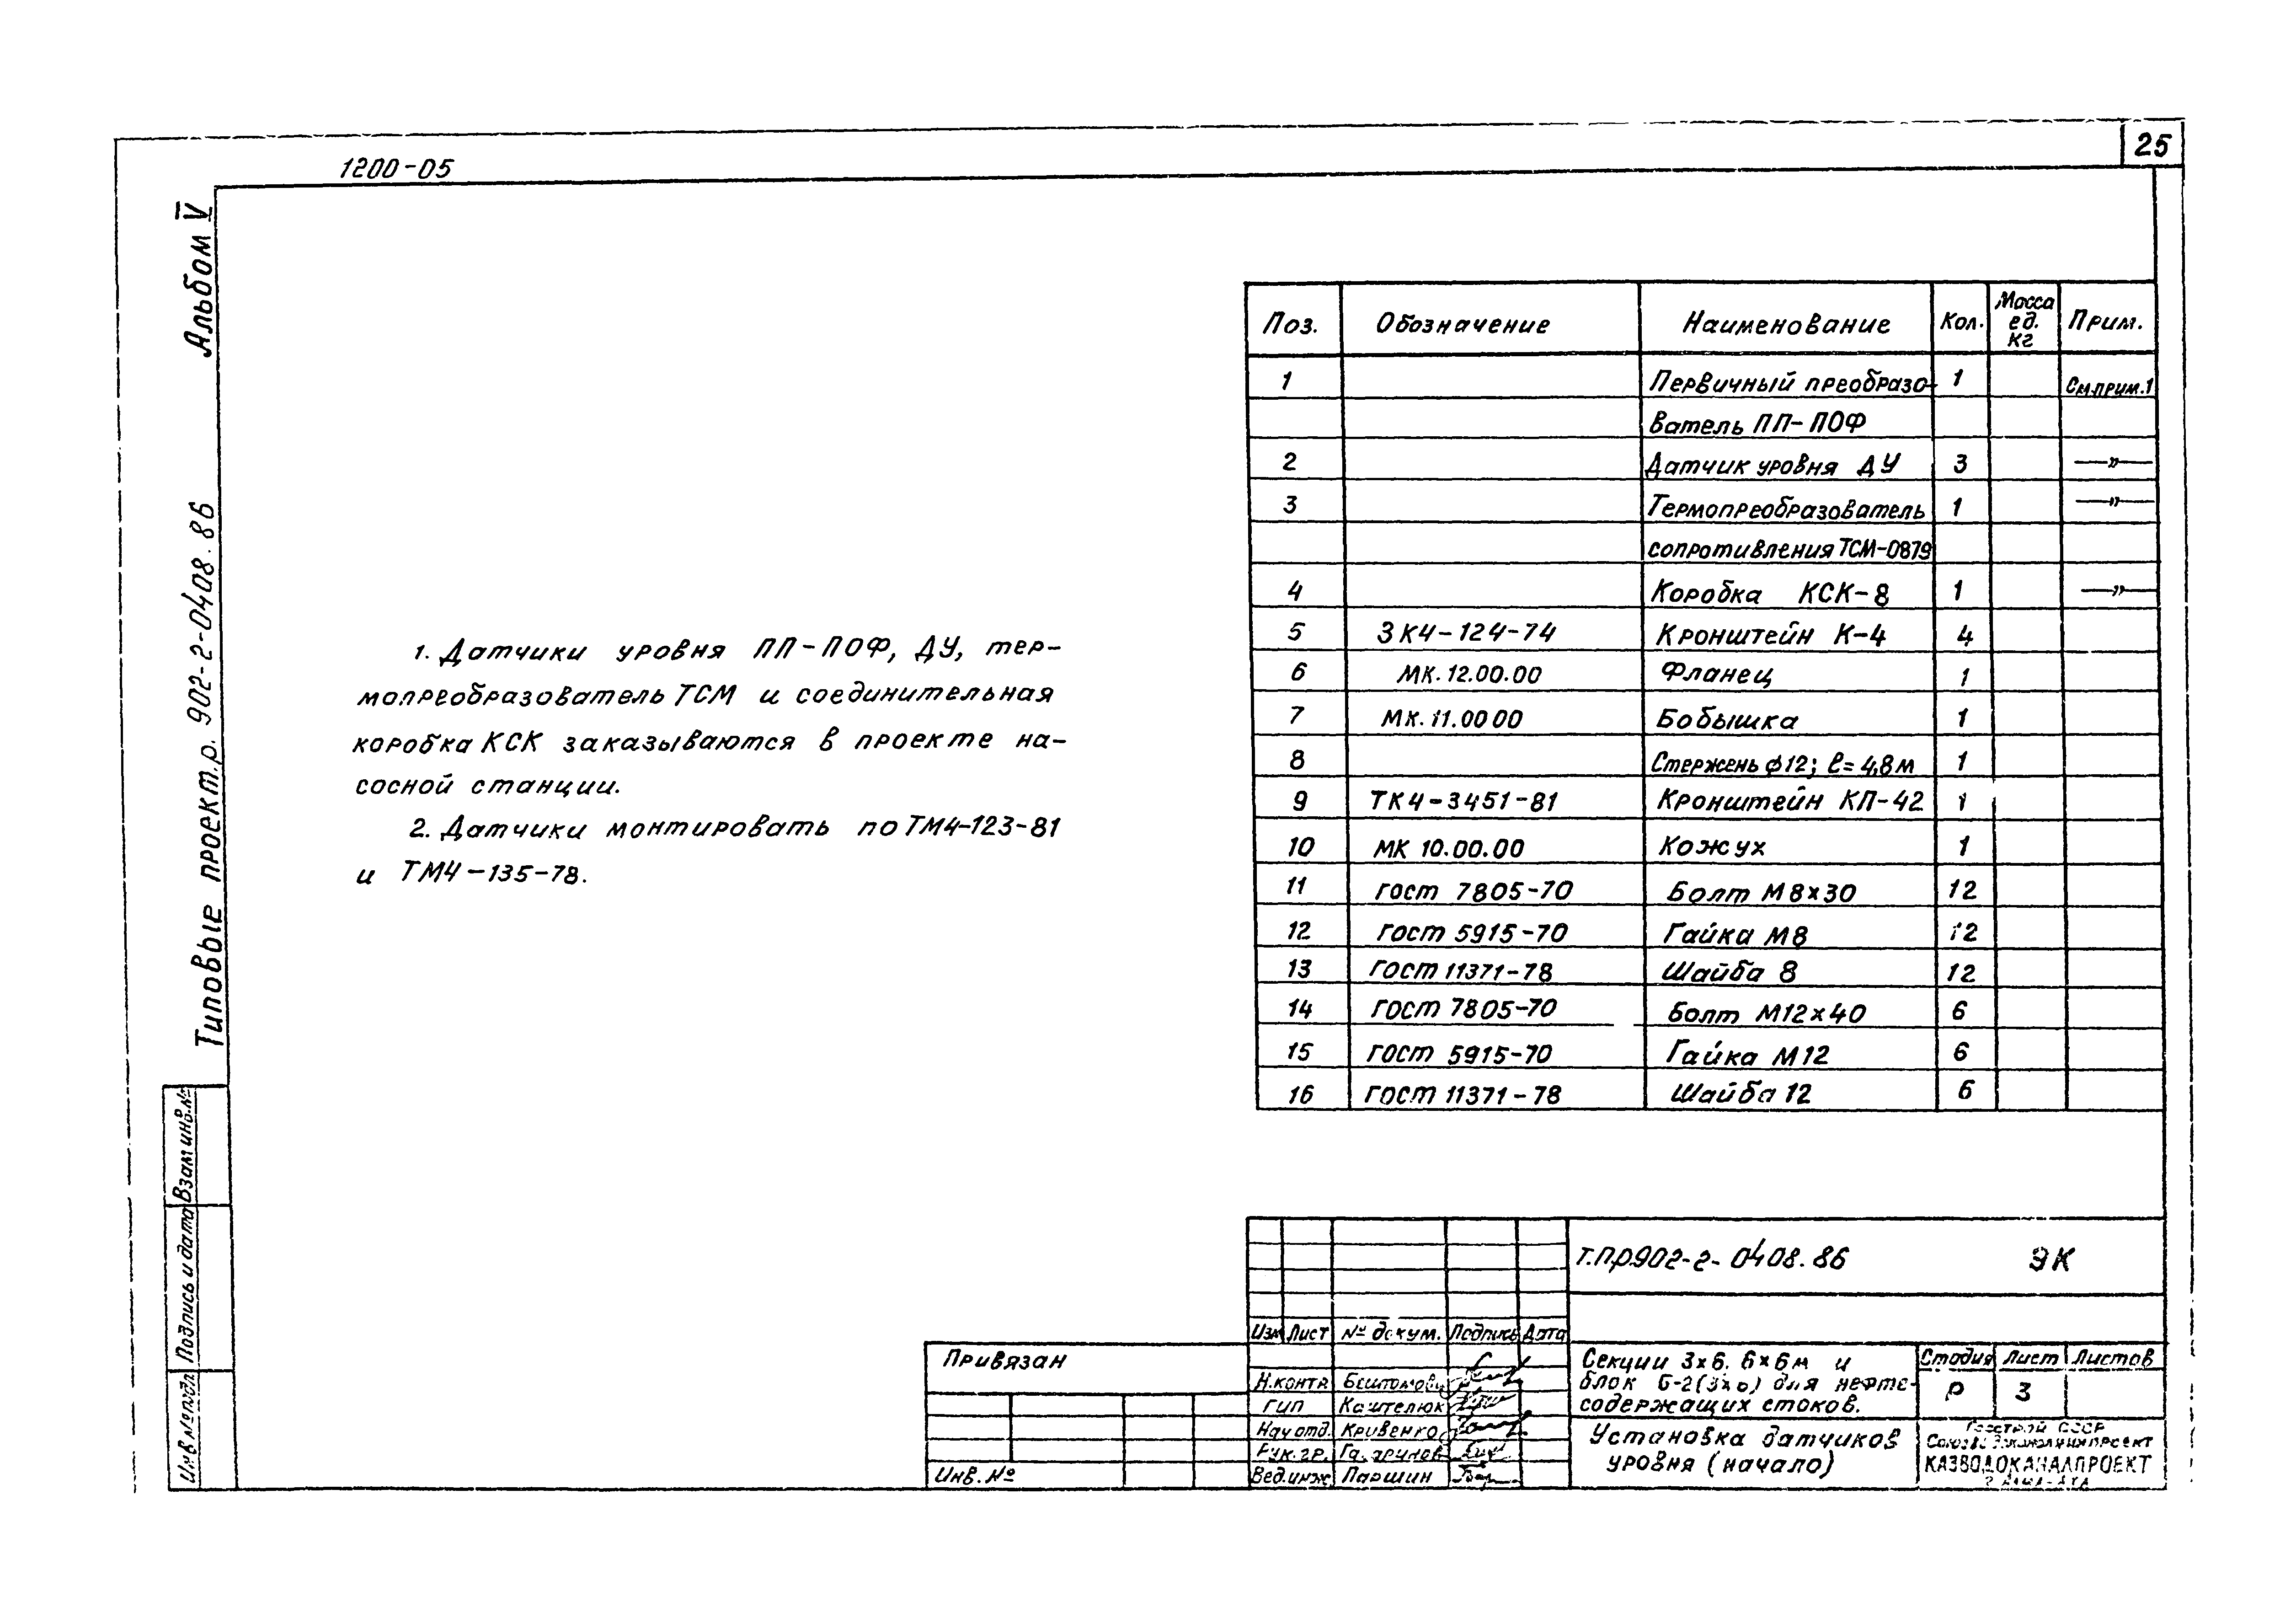 25
1200-05
Альбом V
Типовые проект.р. 902-2-0408.86
Взам инв.№
Подпись и дата
Инв № подл
1. Датчики уровня ПП-ПОФ, ДУ, тер-
мопреобразователь ТСМ и соединительная
коробка КСК заказываются в проекте на-
сосной станции.
2. Датчики монтировать по ТМ4-123-81
и ТМ4-135-78.
Поз. Обозначение Наименование Кол. Масса ед. кг Прим.
1 Первичный преобразо- 1 См.прим.1
ватель ПП-ПОФ
2 Датчик уровня ДУ 3 —"—
3 Термопреобразователь 1 —"—
сопротивления ТСМ-0879
4 Коробка КСК-8 1 —"—
5 ЗК4-124-74 Кронштейн К-4 4
6 МК.12.00.00 Фланец 1
7 МК.11.00 00 Бобышка 1
8 Стержень ф12; ℓ=4,8м 1
9 ТК4-3451-81 Кронштейн КП-42 1
10 МК 10.00.00 Кожух 1
11 ГОСТ 7805-70 Болт М8х30 12
12 ГОСТ 5915-70 Гайка М8 12
13 ГОСТ 11371-78 Шайба 8 12
14 ГОСТ 7805-70 Болт М12х40 6
15 ГОСТ 5915-70 Гайка М12 6
16 ГОСТ 11371-78 Шайба 12 6
Т.П.р.902-2-0408.86 ЭК
Изм Лист № докум. Подпись Дата
Привязан
Инв. №
Н.контр
ГИП Каштелюк
Нач отд. Кривенко
Рук. гр.
Вед.инж. Паршин
Секции 3х6. 6х6м и
блок Б-2(3х6) для нефте-
содержащих стоков.
Стадия Лист Листов
Р 3
Установка датчиков
уровня (начало)
Госстрой СССР
КАЗВОДОКАНАЛПРОЕКТ
г Алма-Ата